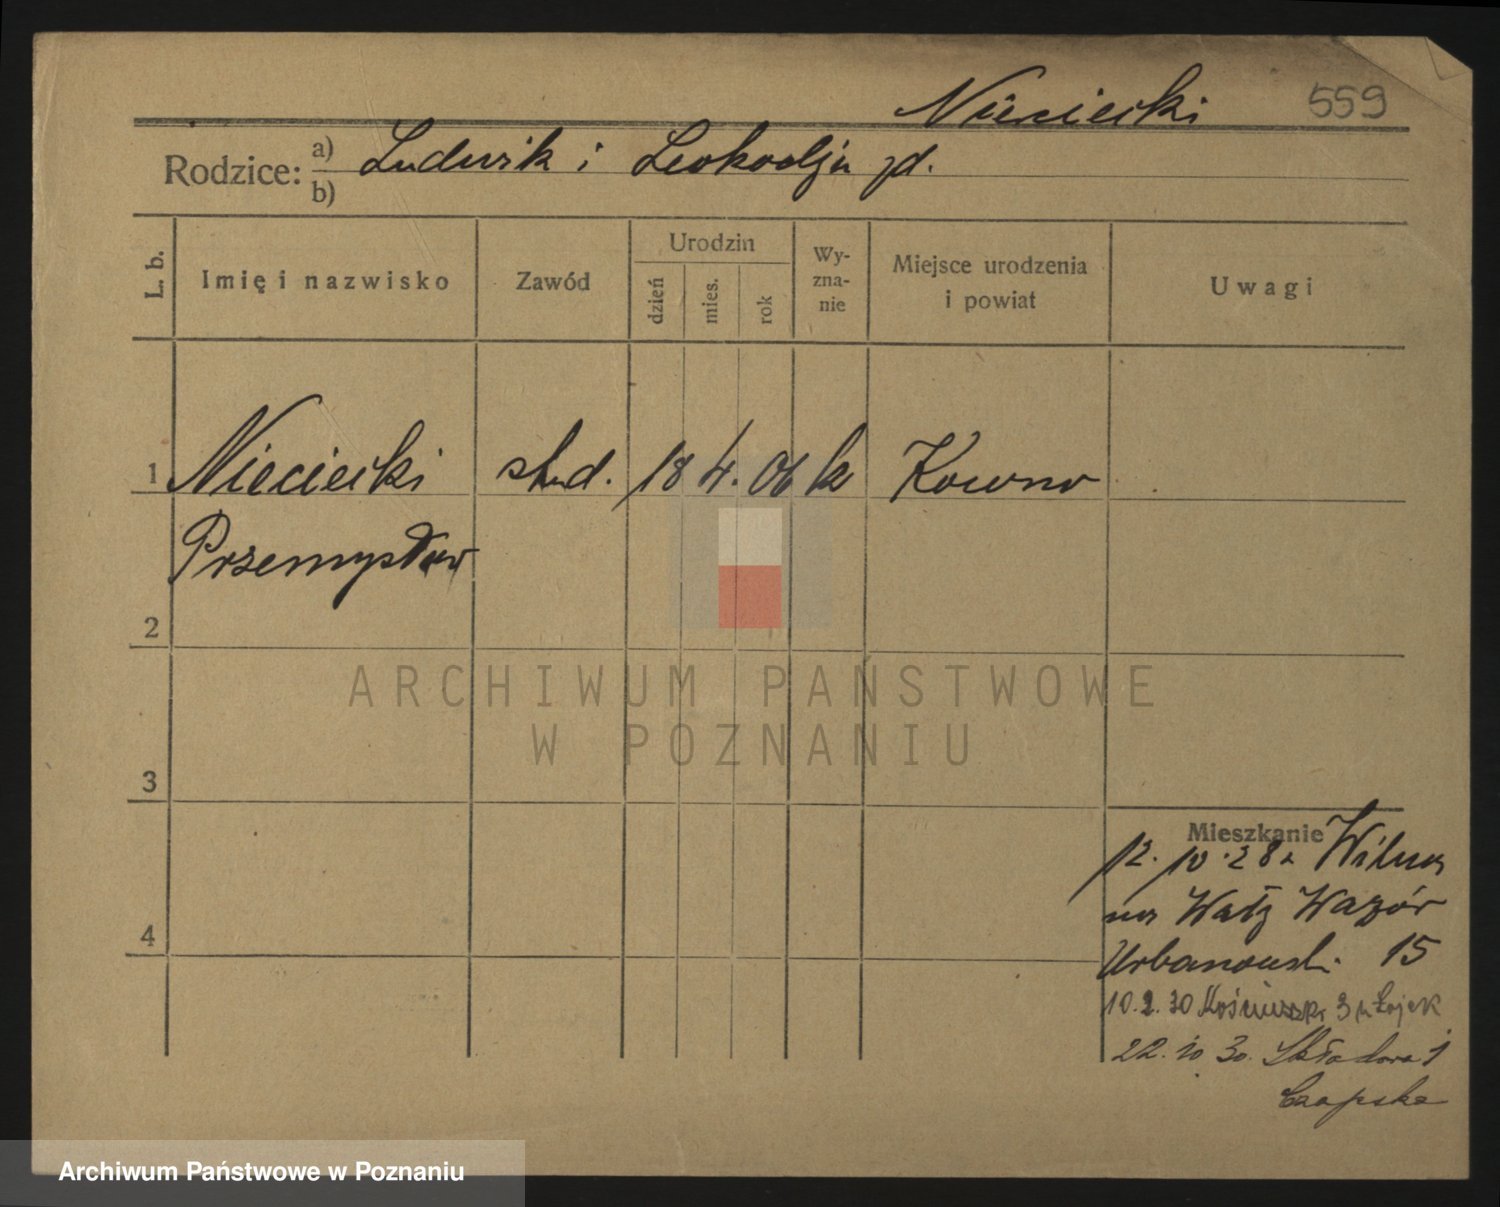 Nieciecki 559
Rodzice: a) Ludwik i Leokadja zd.
b)
L. b. Imię i nazwisko Zawód Urodzin Wy-zna-nie Miejsce urodzenia i powiat Uwagi
dzień mies. rok
1 Nieciecki stud. 18 4. 06 k Kowno
Przemysław
2
3
4
Mieszkanie
12. 10. 28 z Wilna
na Wały Wazów
Urbanowski 15
10.2.30 Kościuszki 3 Łojek
22. 10 30. Składowa 1
Czapska
ARCHIWUM PAŃSTWOWE
W POZNANIU
Archiwum Państwowe w Poznaniu